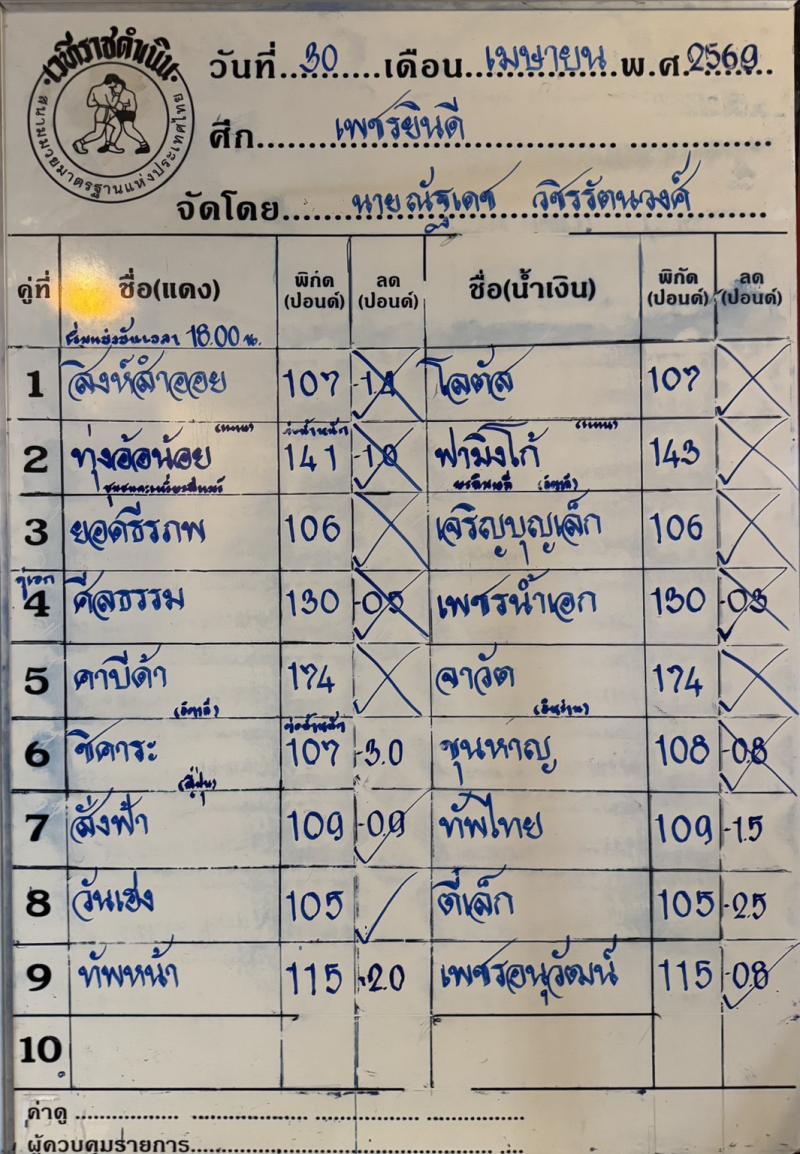 เวทีราชดำเนิน
สนามมวยมาตรฐานแห่งประเทศไทย
วันที่...30...เดือน...เมษายน...พ.ศ.2569
ศึก...เพชรยินดี
จัดโดย...นายณัฐเดช วชิรรัตนวงศ์
คู่ที่ ชื่อ(แดง) พิกัด (ปอนด์) ลด (ปอนด์) ชื่อ(น้ำเงิน) พิกัด (ปอนด์) ลด (ปอนด์)
เริ่มแข่งขันเวลา 18.00 น.
1 สิงห์สำออย 107 -1.4 โลตัส 107
2 ทุ่งอ้อน้อย 141 -1.0 ฟามิงโก้ 143
3 ยอดธีรภพ 106 เจริญบุญเล็ก 106
คู่เอก
4 ศีลธรรม 130 -0.5 เพชรน้ำเอก 130 -0.3
5 คาบีด้า 174 จาวัต 174
(อิตาลี) (อิหร่าน)
6 ชิคาระ 107 -3.0 ขุนหาญ 108 -0.8
(ญี่ปุ่น)
7 สั่งฟ้า 109 -0.9 ทัพไทย 109 -1.5
8 วันเฮง 105 ตี๋เล็ก 105 -2.5
9 ทัพหน้า 115 -2.0 เพชรอนุวัฒน์ 115 -0.8
10
ค่าดู
ผู้ควบคุมรายการ